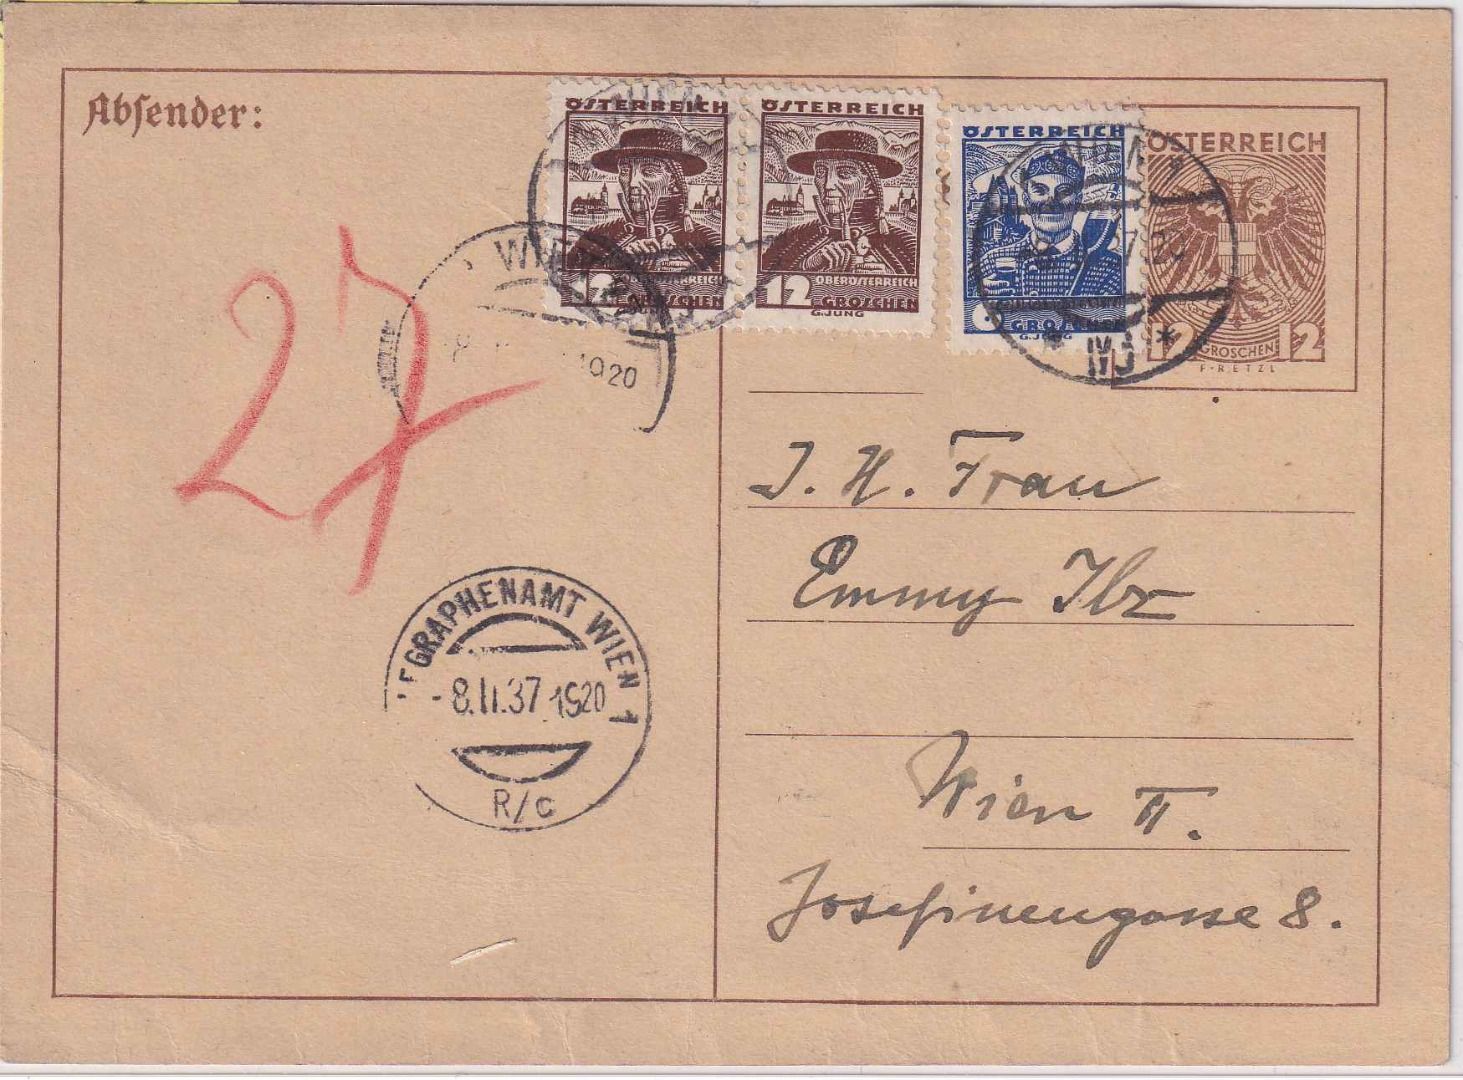 Absender:
ÖSTERREICH
12
GROSCHEN
G.JUNG
ÖSTERREICH
12
OBERÖSTERREICH
GROSCHEN
G.JUNG
ÖSTERREICH
GROSCHEN
G.JUNG
ÖSTERREICH
12 GROSCHEN 12
F·RETZL
WIEN
1920
27
I. H. Frau
Emmy Ibz
Wien II.
Josefinengasse 8.
EGRAPHENAMT WIEN 1
-8.II.37.1920
R/c